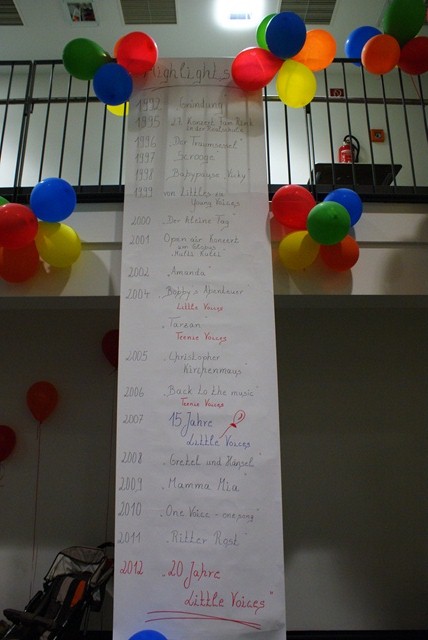 Highlights
1992 Gründung
1995
in der Kreuzkirche
1996 „Der Traumsessel"
1997 Scrooge
1998 Babypause Vicky
1999 von Littles zu
Young Voices
2000 „Der kleine Tag"
2001 Open air Konzert
2002 „Amanda"
2004 „Bobby's Abenteuer"
Little Voices
„Tarzan"
Teenie Voices
2005 „Christopher
Kirchenmaus"
2006 „Back to the music"
Teenie Voices
2007 15 Jahre
Little Voices
2008 „Gretel und Hänsel"
2009 „Mamma Mia"
2010 „One Voice - one song"
2011 „Ritter Rost"
2012 „20 Jahre
Little Voices"